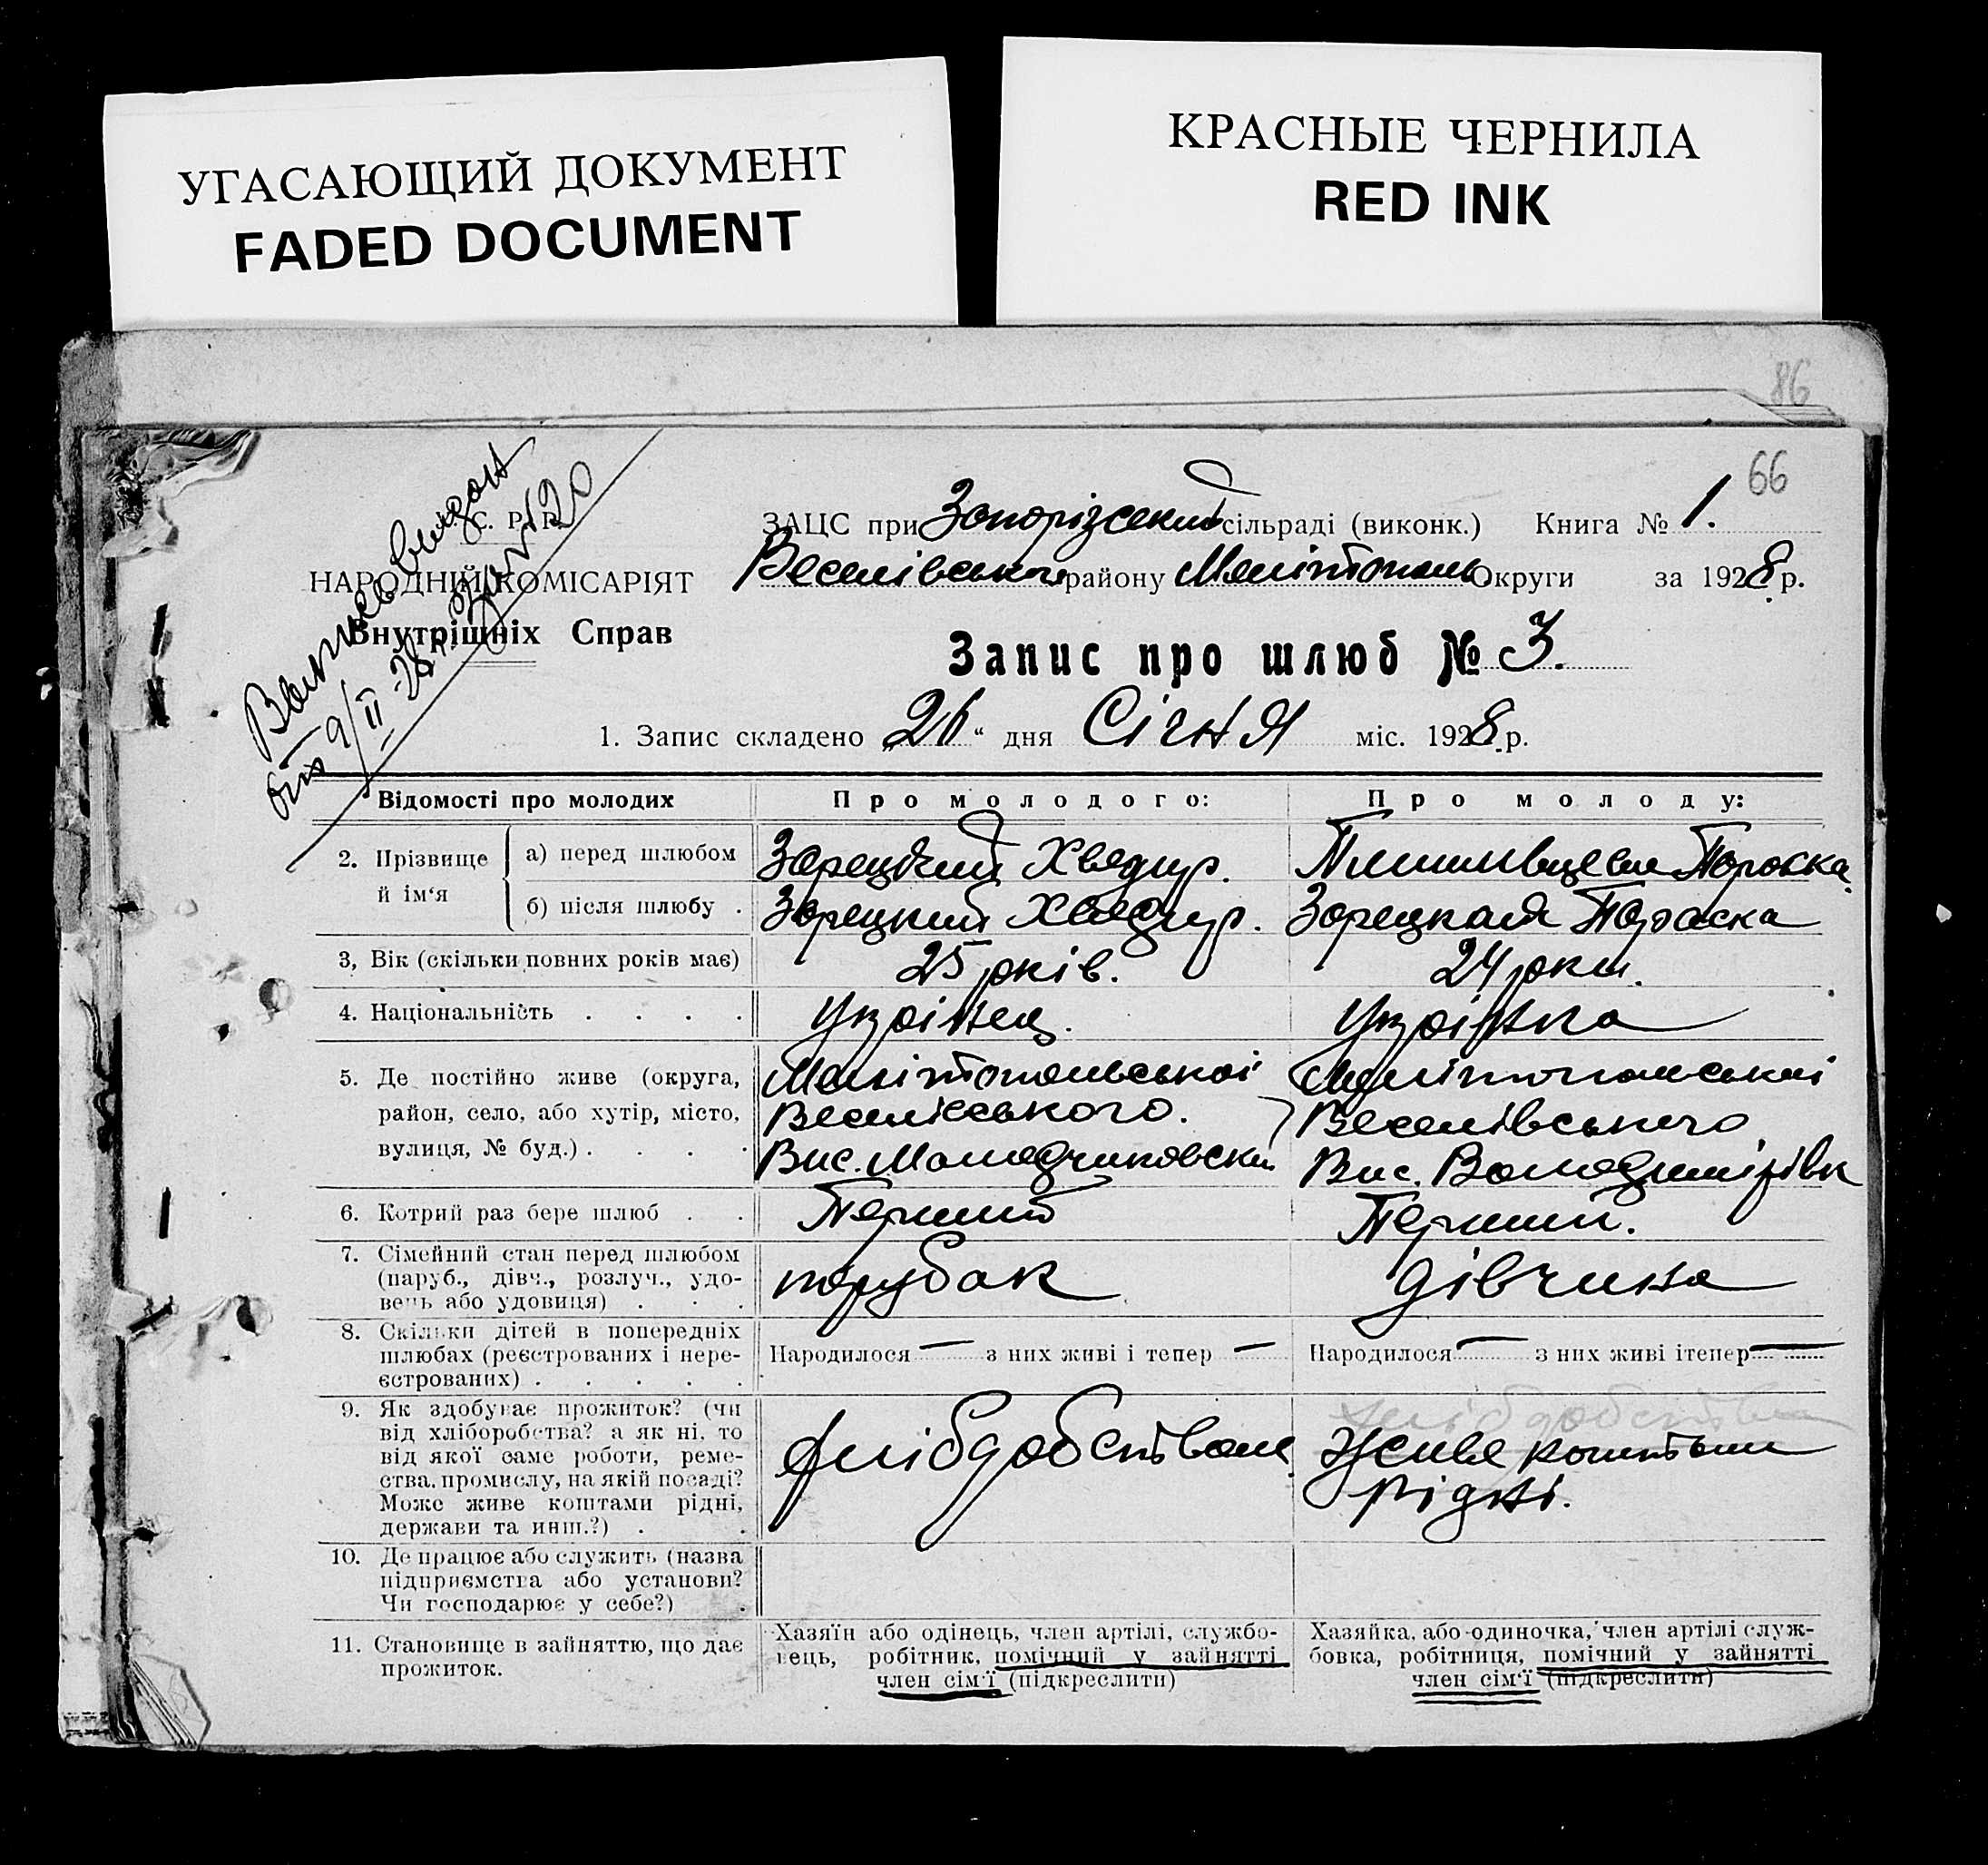 УГАСАЮЩИЙ ДОКУМЕНТ
FADED DOCUMENT
КРАСНЫЕ ЧЕРНИЛА
RED INK
86
66
С. Р. Р.
НАРОДНІЙ КОМІСАРІЯТ
Внутрішніх Справ
ЗАЦС при Запорізській сільраді (виконк.) Книга № 1.
Веселівського району Мелітополь Округи за 1928 р.
Запис про шлюб № 3.
1. Запис складено „26“ дня Січня міс. 1928 р.
9/II 28
Відомості про молодих
Про молодого:
Про молоду:
2. Прізвище й ім‘я
а) перед шлюбом
Зарецкий Хведир.
Параска
б) після шлюбу .
Зарецкий Хведир.
Зарецкая Параска
3, Вік (скільки повних років має)
25 років.
24 роки.
4. Національність . . . .
Украінец.
Украінка
5. Де постійно живе (округа,
район, село, або хутір, місто,
вулиця, № буд.) . . . .
Мелітопольськоі
Веселівського.
Вис.
Мелітопольськоі
Веселівського
Вис. Володимирівк
6. Котрий раз бере шлюб . .
Перший
Перший.
7. Сімейний стан перед шлюбом
(паруб., дівч., розлуч., удо-
вець або удовиця) . . .
парубак
дівчина
8. Скільки дітей в попередніх
шлюбах (реєстрованих і нере-
єстрованих) . . . . .
Народилося — з них живі і тепер —
Народилося — з них живі ітепер —
9. Як здобуває прожиток? (чи
від хліборобства? а як ні, то
від якої саме роботи, реме-
ства, промислу, на якій посаді?
Може живе коштами рідні,
держави та инш.?) . .
Живе коштами
рідні.
10. Де працює або служить (назва
підприємства або установи?
Чи господарює у себе?) .
11. Становище в зайняттю, що дає
прожиток.
Хазяїн або одінець, член артілі, службо-
вець, робітник, помічний у зайнятті
член сім‘ї (підкреслити)
Хазяйка, або одиночка, член артілі служ-
бовка, робітниця, помічний у зайнятті
член сім‘ї (підкреслити)